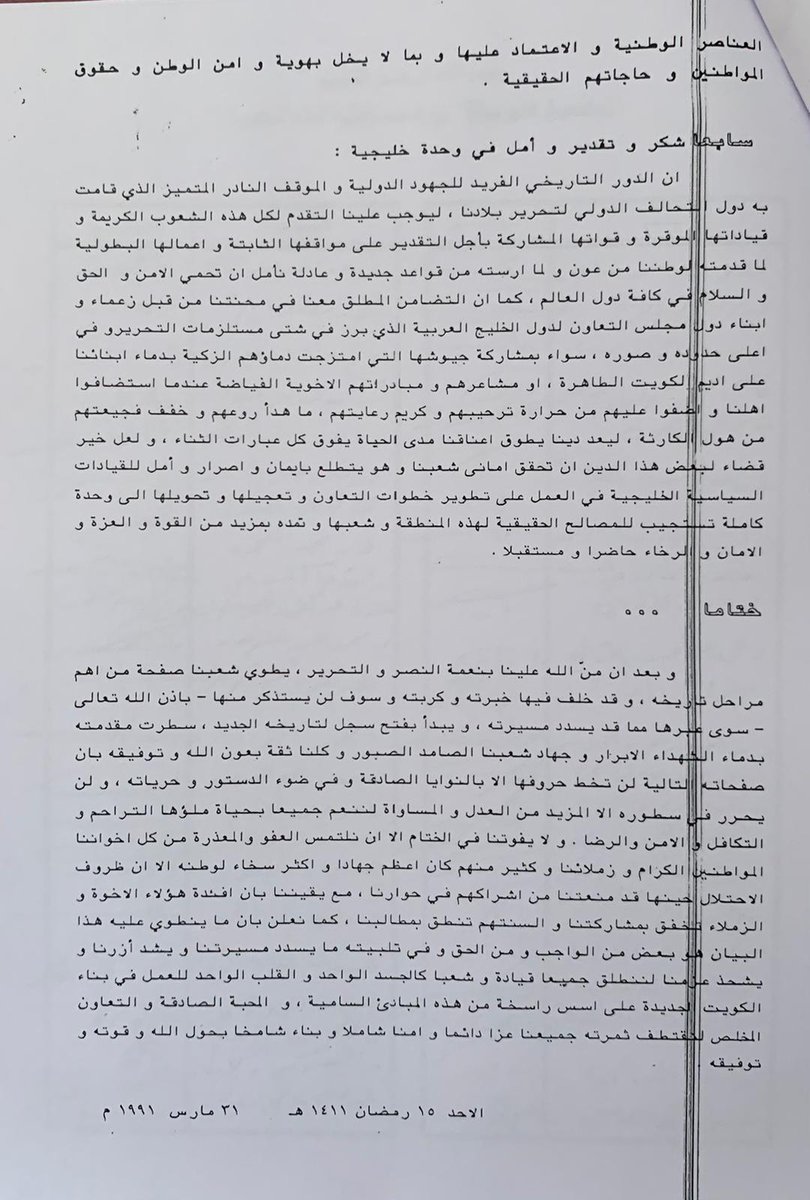 العناصر الوطنية و الاعتماد عليها و بما لا يخل بهوية و امن الوطن و حقوق
المواطنين و حاجاتهم الحقيقية .
سابعا شكر و تقدير و أمل في وحدة خليجية :
ان الدور التاريخي الفريد للجهود الدولية و الموقف النادر المتميز الذي قامت
به دول التحالف الدولي لتحرير بلادنا ، ليوجب علينا التقدم لكل هذه الشعوب الكريمة و
قياداتها الموقرة و قواتها المشاركة بأجل التقدير على مواقفها الثابتة و اعمالها البطولية
لما قدمته لوطننا من عون و لما ارسته من قواعد جديدة و عادلة نأمل ان تحمي الامن و الحق
و السلام في كافة دول العالم ، كما ان التضامن المطلق معنا في محنتنا من قبل زعماء و
ابناء دول مجلس التعاون لدول الخليج العربية الذي برز في شتى مستلزمات التحريرو في
اعلى حدوده و صوره ، سواء بمشاركة جيوشها التي امتزجت دماؤهم الزكية بدماء ابنائنا
على اديم الكويت الطاهرة ، او مشاعرهم و مبادراتهم الاخوية الفياضة عندما استضافوا
اهلنا و اضفوا عليهم من حرارة ترحيبهم و كريم رعايتهم ، ما هدأ روعهم و خفف فجيعتهم
من هول الكارثة ، ليعد دينا يطوق اعناقنا مدى الحياة يفوق كل عبارات الثناء ، و لعل خير
قضاء لبعض هذا الدين ان تحقق امانى شعبنا و هو يتطلع بايمان و اصرار و أمل للقيادات
السياسية الخليجية في العمل على تطوير خطوات التعاون و تعجيلها و تحويلها الى وحدة
كاملة تستجيب للمصالح الحقيقية لهذه المنطقة و شعبها و تمده بمزيد من القوة و العزة و
الامان و الرخاء حاضرا و مستقبلا .
ختاما ...
و بعد ان منّ الله علينا بنعمة النصر و التحرير ، يطوي شعبنا صفحة من اهم
مراحل تاريخه ، و قد خلف فيها خبرته و كربته و سوف لن يستذكر منها - باذن الله تعالى
- سوى عبرها مما قد يسدد مسيرته ، و يبدأ بفتح سجل لتاريخه الجديد ، سطرت مقدمته
بدماء الشهداء الابرار و جهاد شعبنا الصامد الصبور و كلنا ثقة بعون الله و توفيقه بان
صفحاته التالية لن تخط حروفها الا بالنوايا الصادقة و في ضوء الدستور و حرياته ، و لن
يحرر في سطوره الا المزيد من العدل و المساواة لننعم جميعا بحياة ملؤها التراحم و
التكافل و الامن والرضا . و لا يفوتنا في الختام الا ان نلتمس العفو والمعذرة من كل اخواننا
المواطنين الكرام و زملائنا و كثير منهم كان اعظم جهادا و اكثر سخاء لوطنه الا ان ظروف
الاحتلال حينها قد منعتنا من اشراكهم في حوارنا ، مع يقيننا بان افئدة هؤلاء الاخوة و
الزملاء تخفق بمشاركتنا و السنتهم تنطق بمطالبنا ، كما نعلن بان ما ينطوي عليه هذا
البيان هو بعض من الواجب و من الحق و في تلبيته ما يسدد مسيرتنا و يشد أزرنا و
يشحذ عزمنا لننطلق جميعا قيادة و شعبا كالجسد الواحد و القلب الواحد للعمل في بناء
الكويت الجديدة على اسس راسخة من هذه المبادئ السامية ، و المحبة الصادقة و التعاون
المخلص لنقتطف ثمرته جميعنا عزا دائما و امنا شاملا و بناء شامخا بحول الله و قوته و
توفيقه .
الاحد ١٥ رمضان ١٤١١ هـ ٣١ مارس ١٩٩١ م